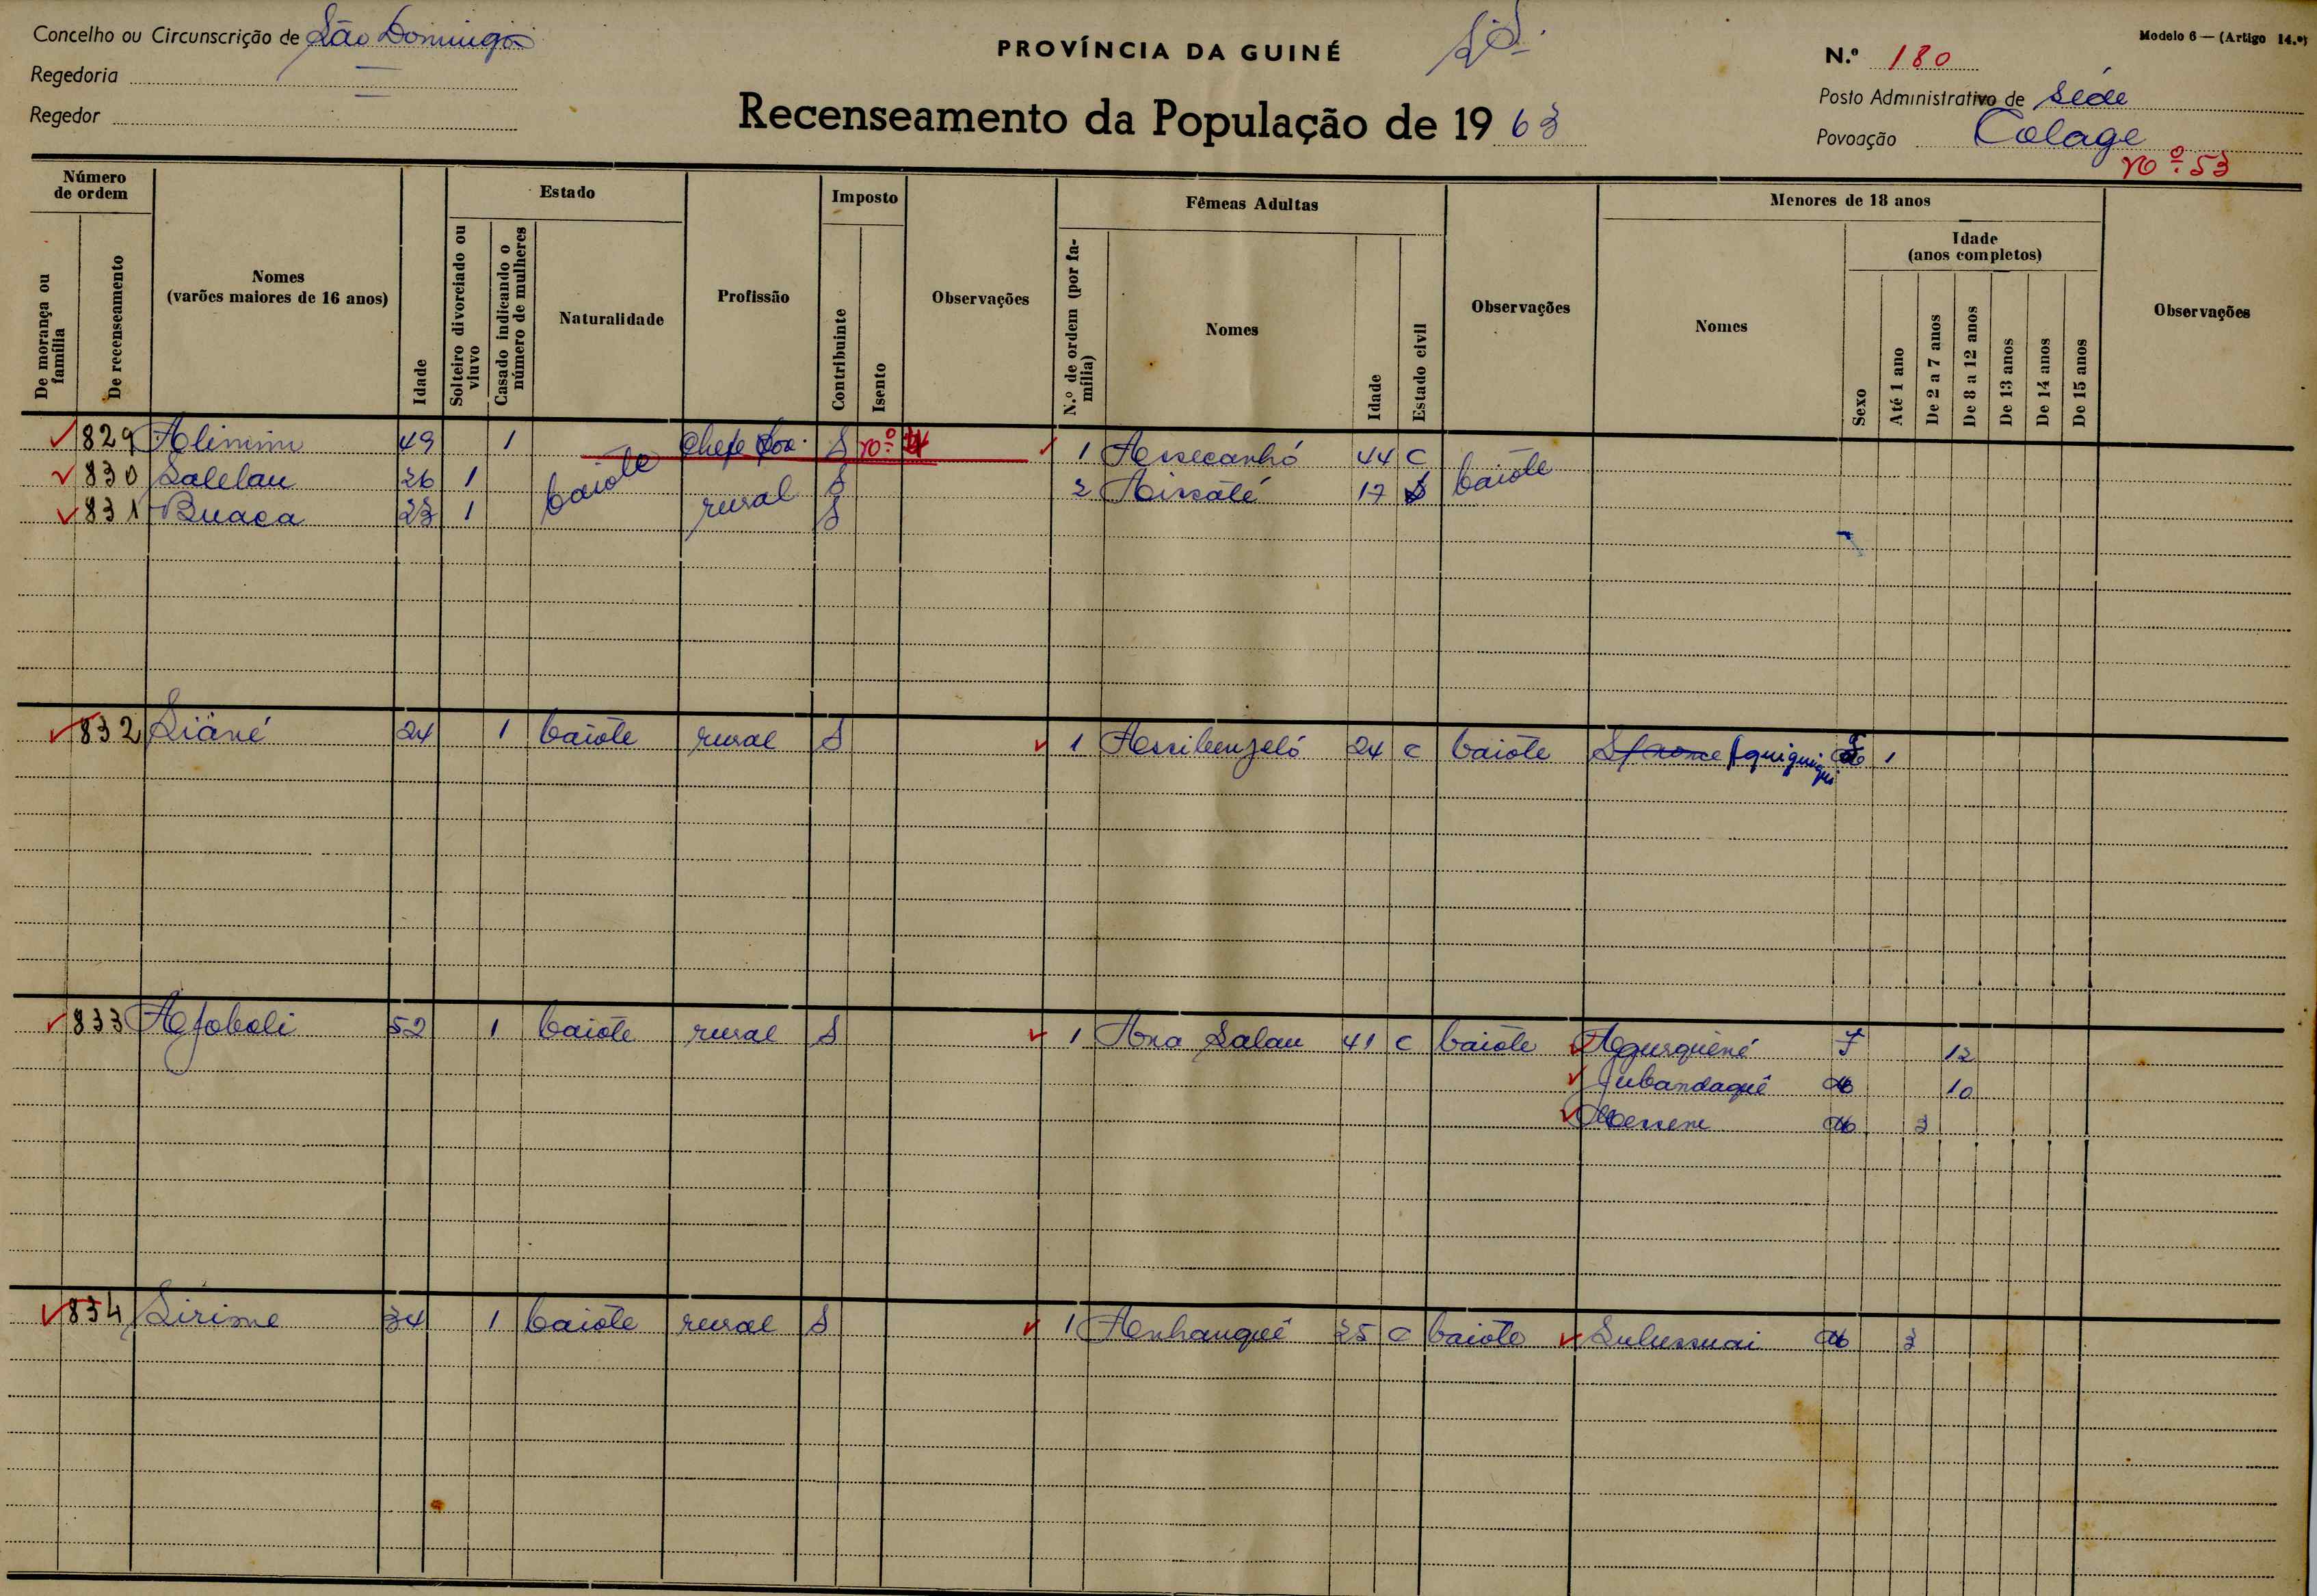 Concelho ou Circunscrição de São Domingos
Regedoria —
Regedor
PROVÍNCIA DA GUINÉ
Recenseamento da População de 1963
Modelo 6 — (Artigo 14.º)
N.º 180
Posto Administrativo de séde
Povoação Colage
Nº 53
Número de ordem
De morança ou família
De recenseamento
Nomes (varões maiores de 16 anos)
Idade
Estado
Solteiro divorciado ou viuvo
Casado indicando o número de mulheres
Naturalidade
Profissão
Imposto
Contribuinte
Isento
Observações
Fêmeas Adultas
N.º de ordem (por família)
Nomes
Idade
Estado civil
Observações
Menores de 18 anos
Nomes
Idade (anos completos)
Sexo
Até 1 ano
De 2 a 7 anos
De 8 a 12 anos
De 13 anos
De 14 anos
De 15 anos
Observações
829 Alimim 49 1 Chefe S Nº 1 Assecanhó 44 C
830 Salelau 26 1 baiote rural S 2 Aissaté 17 S baiote
831 Buaca 23 1 S
832 Siãné 24 1 baiote rural S 1 Assibenjeló 24 C baiote 1
833 Ajoboli 52 1 baiote rural S 1 Ana Salau 41 C baiote Agusquiené F 12
Jubandaquê M 10
Messene M 3
834 Sirime 34 1 baiote rural S 1 Anhanquê 25 C baiote Sulussuai M 3